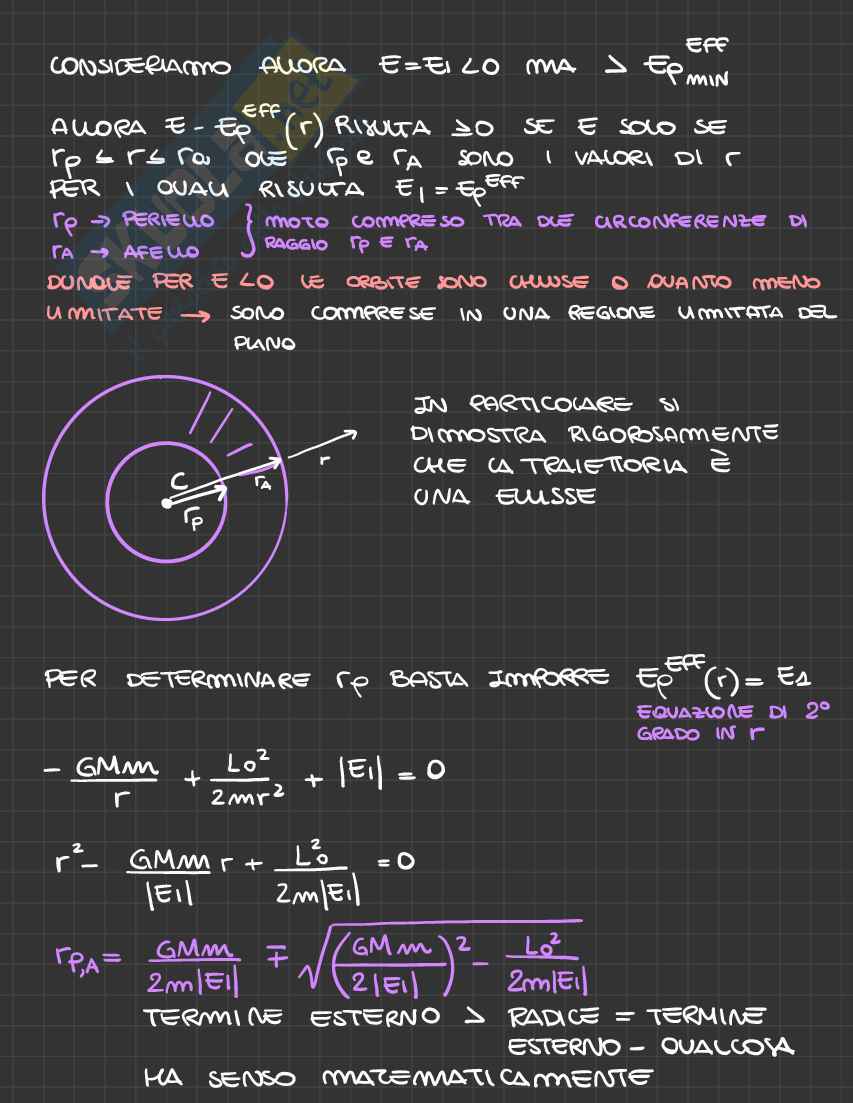 CONSIDERIAMO ALLORA E=E₁<0 MA > Ep^EFF MIN
ALLORA E - Ep^EFF (r) RISULTA ≥0 SE E SOLO SE
rp ≤ r ≤ rA OVE rp e rA SONO I VALORI DI r
PER I QUALI RISULTA E₁ = Ep^EFF
rp → PERIELIO } MOTO COMPRESO TRA DUE CIRCONFERENZE DI
rA → AFELIO RAGGIO rp E rA
DUNQUE PER E<0 LE ORBITE SONO CHIUSE O QUANTO MENO
LIMITATE → SONO COMPRESE IN UNA REGIONE LIMITATA DEL
PIANO
IN PARTICOLARE SI
DIMOSTRA RIGOROSAMENTE
CHE LA TRAIETTORIA È
UNA ELLISSE
C
rp
rA
r
PER DETERMINARE rp BASTA IMPORRE Ep^EFF (r) = E1
EQUAZIONE DI 2°
GRADO IN r
- GMm/r + L₀²/2mr² + |E₁| = 0
r² - GMm/|E₁| r + L₀²/2m|E₁| = 0
rp,A = GMm/2m|E₁| ∓ √((GMm/2|E₁|)² - L₀²/2m|E₁|)
TERMINE ESTERNO > RADICE = TERMINE
ESTERNO - QUALCOSA
HA SENSO MATEMATICAMENTE